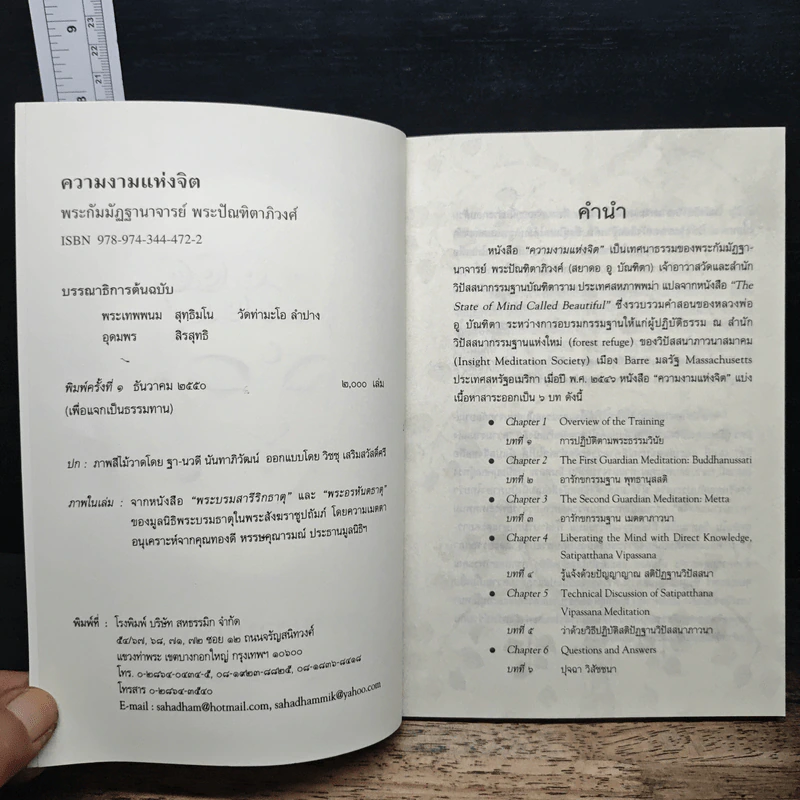 ความงามแห่งจิต
พระกัมมัฏฐานาจารย์ พระปัณฑิตาภิวงศ์
ISBN 978-974-344-472-2
บรรณาธิการต้นฉบับ
พระเทพพนม สุทฺธิมโน วัดท่ามะโอ ลำปาง
อุดมพร สิรสุทธิ
พิมพ์ครั้งที่ ๑ ธันวาคม ๒๕๕๐ ๒,๐๐๐ เล่ม
(เพื่อแจกเป็นธรรมทาน)
ปก : ภาพสีไม้วาดโดย ฐา-นวดี นันทาภิวัฒน์ ออกแบบโดย วิชชุ เสริมสวัสดิ์ศรี
ภาพในเล่ม : จากหนังสือ “พระบรมสารีริกธาตุ” และ “พระอรหันตธาตุ”
ของมูลนิธิพระบรมธาตุในพระสังฆราชูปถัมภ์ โดยความเมตตา
อนุเคราะห์จากคุณทองดี หรรษคุณารมณ์ ประธานมูลนิธิฯ
พิมพ์ที่ : โรงพิมพ์ บริษัท สหธรรมิก จำกัด
๕๔/๖๗, ๖๘, ๗๑, ๗๒ ซอย ๑๒ ถนนจรัญสนิทวงศ์
แขวงท่าพระ เขตบางกอกใหญ่ กรุงเทพฯ ๑๐๖๐๐
โทร. ๐-๒๘๖๔-๐๔๓๔-๕, ๐๘-๑๙๒๓-๘๘๒๕, ๐๘-๑๘๓๖-๘๔๑๘
โทรสาร ๐-๒๘๖๔-๓๕๔๐
E-mail : sahadham@hotmail.com, sahadhammik@yahoo.com
คำนำ
หนังสือ “ความงามแห่งจิต” เป็นเทศนาธรรมของพระกัมมัฏฐา-
นาจารย์ พระปัณฑิตาภิวงศ์ (สยาดอ อู บัณฑิตา) เจ้าอาวาสวัดและสำนัก
วิปัสสนากรรมฐานบัณฑิตาราม ประเทศสหภาพพม่า แปลจากหนังสือ “The
State of Mind Called Beautiful” ซึ่งรวบรวมคำสอนของหลวงพ่อ
อู บัณฑิตา ระหว่างการอบรมกรรมฐานให้แก่ผู้ปฏิบัติธรรม ณ สำนัก
วิปัสสนากรรมฐานแห่งใหม่ (forest refuge) ของวิปัสสนาภาวนาสมาคม
(Insight Meditation Society) เมือง Barre มลรัฐ Massachusetts
ประเทศสหรัฐอเมริกา เมื่อปี พ.ศ. ๒๕๔๖ หนังสือ “ความงามแห่งจิต” แบ่ง
เนื้อหาสาระออกเป็น ๖ บท ดังนี้
• Chapter 1 Overview of the Training
บทที่ ๑ การปฏิบัติตามพระธรรมวินัย
• Chapter 2 The First Guardian Meditation: Buddhanussati
บทที่ ๒ อารักขกรรมฐาน พุทธานุสสติ
• Chapter 3 The Second Guardian Meditation: Metta
บทที่ ๓ อารักขกรรมฐาน เมตตาภาวนา
• Chapter 4 Liberating the Mind with Direct Knowledge,
Satipatthana Vipassana
บทที่ ๔ รู้แจ้งด้วยปัญญาญาณ สติปัฏฐานวิปัสสนา
• Chapter 5 Technical Discussion of Satipatthana
Vipassana Meditation
บทที่ ๕ ว่าด้วยวิธีปฏิบัติสติปัฏฐานวิปัสสนาภาวนา
• Chapter 6 Questions and Answers
บทที่ ๖ ปุจฉา วิสัชชนา